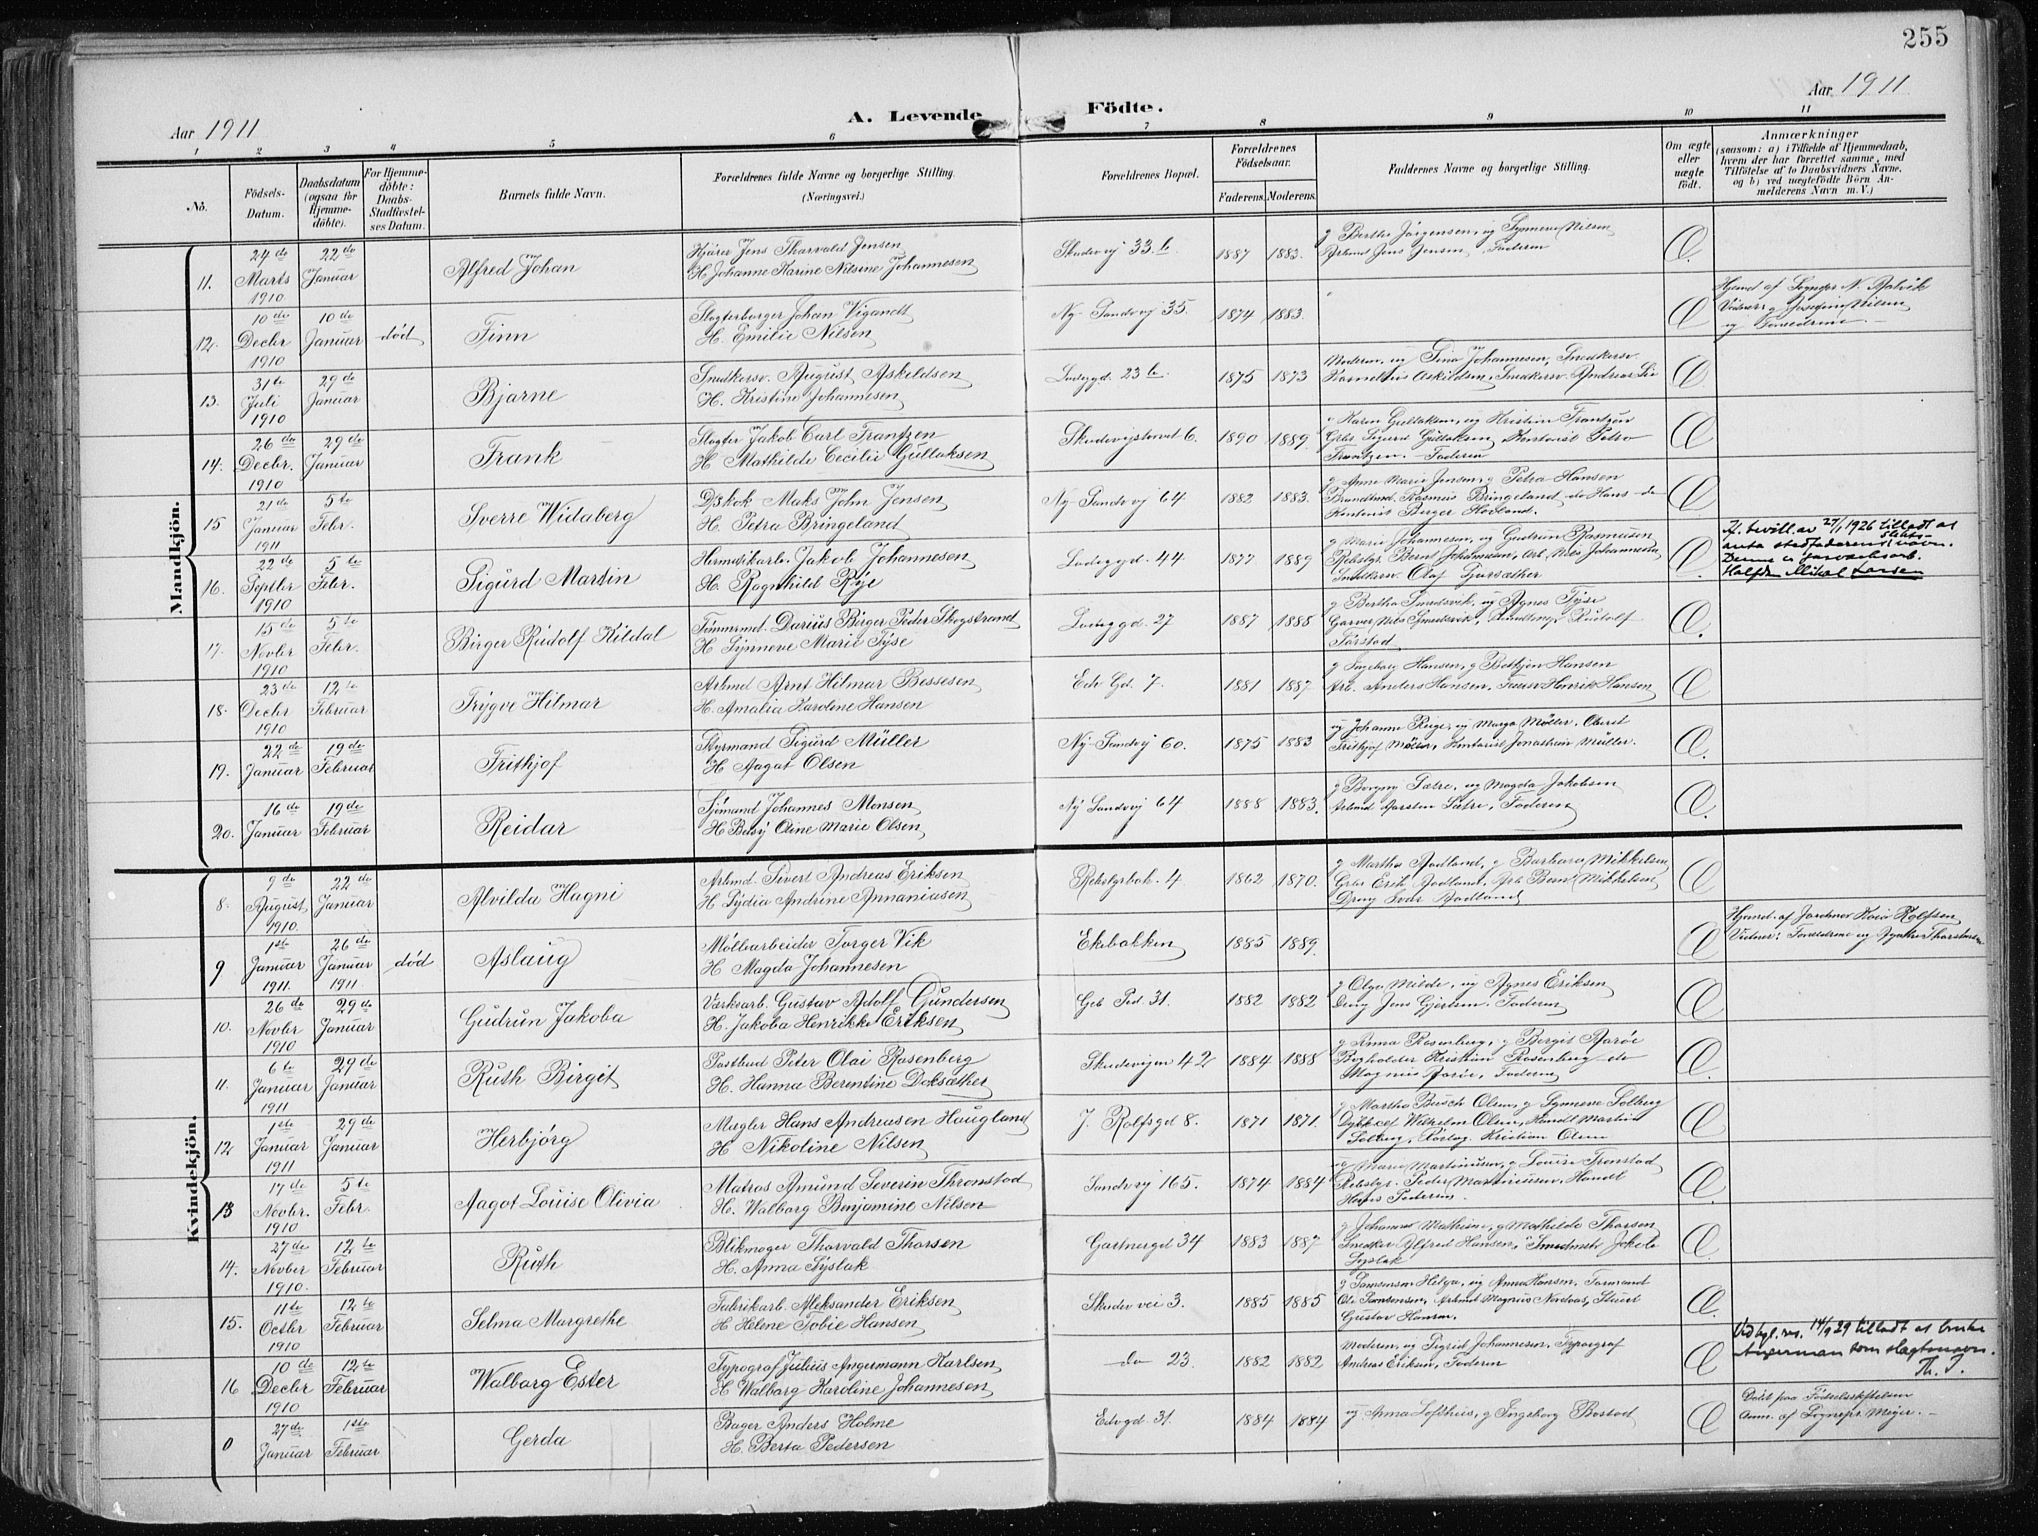 255
Aar 1911
A. Levende Födte.
Aar 1911
1 2 3 4 5 6 7 8 9 10 11
No.
Födsels-Datum.
Daabsdatum (ogsaa för Hjemmedöbte).
For Hjemmedöbte: Daabs-Stadfæstelses Datum.
Barnets fulde Navn.
Forældrenes fulde Navne og borgerlige Stilling. (Næringsvei.)
Forældrenes Bopæl.
Forældrenes Födselsaar.
Faderens. Moderens.
Faddernes Navne og borgerlige Stilling.
Om ægte eller uægte födt.
Anmærkninger
(saasom: a) i Tilfælde af Hjemmedaab, hvem der har forrettet samme, med Tilföielse af to Daabsvidners Navne, og b) ved uægtefödte Börn Anmelderens Navn m. V.)
Mandkjön.
11. 24de Marts 1910 22de Januar Alfred Johan
Kjører Jens Thorvald Jensen
H. Johanne Karine Nilsine Johannesen
Skudevj 33 b 1887 1883.
g Berthe Jørgensen, ug Synneve Nilsen
Arbmd Jens Jensen, Faderen
Æ.
12. 10de Decbr 1910 10de Januar død Finn
Slagterborger Johan Vigandt
H. Emilie Nilsen
Ny-Sandvj 35. 1874 1883.
Æ
Hjemd af Sognepr N.
og Forældrene
13. 31te Juli 1910 29de Januar Bjarne
Snedkersv. August Askeldsen
H. Kristine Johannesen
Ladeggd. 23 b. 1875 1873
Moderen, ug Sina Johannesen, Snedkersv.
Kornelius Askildsen, Snedkersv. Andreas Lie
Æ
14. 26de Decbr. 1910 29de Januar Frank
Slagter Jakob Carl Frantzen
H Mathilde Cecilie Gullaksen
Skudevigstorvet 6. 1890 1889
Karen Gullaksen, ug Kristine Frantzen
Grbs Sigurd Gullaksen, Kontorist Petro
Frantzen. - Faderen
Æ
15 21de Januar 1911 5te Febr. Sverre Widaberg
Dpskok Maks John Jensen
H. Petra Bringeland
Ny-Sandvj 64 1882 1883.
g Anne Marie Jensen, g Petra Hansen
Brandknd. Rasmus Bringeland, do Hans do
Kontorist Birger Hodland.
Æ
16. 22de Septbr 1910 5te Febr. Sigurd Martin
Hermetikarb. Jakob Johannesen
H. Ragnhild Rye
Ladeggd. 44 1877 1889
g Marie Johannesen, ug Gudrun Rasmusen
Rebslgr. Bernt Johannesen, Arb. Nils Johannesen
Snedkersv. Olaf
Æ.
If. bevill. av 27/1 1926 tilladt at
anta stedfaderens slekts-navn.
Denne er garverarb.
Halfdan Mikal Larsen
17. 15de Novbr 1910 5te Febr. Birger Rudolf Kildal
Tømmermd. Darius Birger Peder Skogstrand
H Synneve Marie Tyse
Ladeggd. 27 1887 1888
g Bertha Smedsvik, ug Agnes Tyse
Garver Nils Smedsvik, Rudolf
Æ.
18. 23de Decbr 1910 12te Februar Trygve Hilmar
Arbmd Arnt Hilmar Bessesen
H. Amalia Karoline Hansen
Edv Gd. 7. 1881 1887
g Ingeborg Hansen, g Bolthen Hansen
Arb. Anders Hansen, Henrik Hansen
Æ
19. 22de Januar 19de Februar Frithjof
Styrmand Sigurd Müller
H Aagot Olsen
Ny-Sandvj 60. 1875 1883
ug Johanne Ruge, ug Marga Müller.
Frithjof Müller, Kontorist Jonathan Müller.
Æ.
20. 16de Januar 19de Februar Reidar
Sjømand Johannes Monsen
H Betsy Oline Marie Olsen
Ny Sandvj 64 1888 1883.
g Borgny Sætre, ug Magda Jakobsen
Arbmd Karsten Sætre, Faderen
Æ.
Kvindekjön.
8. 9de August 1910. 22de Januar Alvilda Hagni
Arbmd. Sivert Andreas Eriksen
H. Lydia Andrine Annaniasen
Rebslgrbak. 4 1862 1870.
g Martha Aadland, g Barbara Mikkelsen
Grbs Erik Aadland, Arb Bern. Mikkelsen
Aadland
Æ
9 1ste Januar 1911. 26de Januar 1911 død Aslaug
Møllearbeider Torger Vik
H Magda Johannesen
Ekebakken 1885 1889.
Æ
Hjemd. af Jordmor
Vidner: Forældrene og
10. 26de Novbr 1910 29de Januar Gudrun Jakoba
Værksarb. Gustav Adolf Gundersen
H. Jakoba Henrikke Eriksen
Geb Ped. 31. 1882 1882
g Olga Milde, ug Agnes Eriksen
Drag Jens Gjertsen, Faderen
Æ
11. 6te Januar 1911 29de Januar Ruth Birgit
Postbud Peter Olai Rosenberg
H. Hanna Berentine Doksæther
Skudevigen 42 1884 1888
g Anna Rosenberg, g Bergit Aarøe
Bogholder Kristian Rosenberg do
Magnus Aarøe, Faderen
Æ.
12 1ste Januar 1911 29de Januar Herbjørg
Mægler Hans Andreasen Haugland
H Nikoline Nilsen
J. Rolfsgd 8. 1871 1871.
g Martha Busch Olsen, g Synneve Solberg
Wilhelm Olsen, Handl Martin
Solberg, Kristian Olsen
Æ
13 17de Novbr. 1910 5te Febr. Aagot Louise Olivia
Matros Amund Severin Thronstad
H. Walborg Benjamine Nilsen
Sandvj 165. 1874 1884
g Marie Martinusen, g Louise Tronstad
Rebslgr. Peder Martinusen, Handel
Hans Pedersen.
Æ
14. 27de Novber 1910. 12te Februar Ruth
Blikmager Thorvald Thorsen
H. Anna Syslak
Gartnergd 34 1883 1887
g Johannes Mathisen, g Mathilde Thorsen
Snedker Alfred Hansen,
Syslak
Æ
15. 11te Octbr 1910 12te Februar Selma Margrethe
Fabrikarb. Aleksander Eriksen
H Helene Tobie Hansen
Skudev vei 3. 1885 1885
g Samsonsen Helga, ug Anna Hansen, Formand
Ole Samsonsen, Arbmd Magnus Student
Gustav Hansen.
Æ.
16 10de Decbr 1910 12te Februar Walborg Ester
Typograf Julius Angermann Karlsen
H Walborg Karoline Johannesen
do 23. 1882 1882
Moderen, ug Sigrid Johannesen, Typograf
Andreas Eriksen, Faderen
Æ
Ved kgl. res. 14/9 29 tilladt at bruke
Angerman som slegtsnavn.
Th. J.
0 27de Januar 1ste Februar Gerda
Bager Anders Holme
H. Berta Pedersen
Edvgd 31. 1884 1884
ug Anna Lofthus, g Ingeborg Bostad
Æ
Døbt paa Fødselsstiftelsen
Anm. af Sognepr Meyer. -